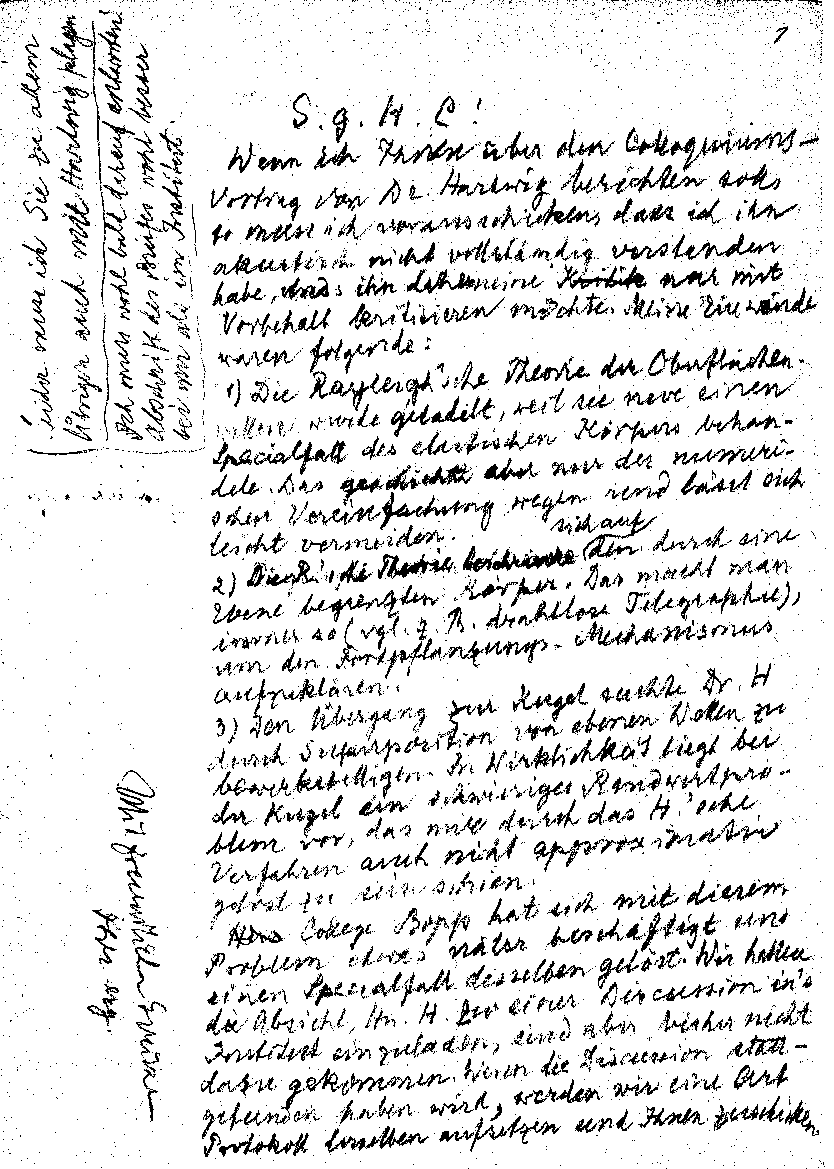 1
S. g. H. C!
Wenn ich Ihnen über den Colloquiums-
Vortrag von Dr. Hartwig berichten soll,
so muss ich vorausschicken, dass ich ihn
akustisch nicht vollständig verstanden
habe, ihn nur mit
Vorbehalt kritisieren möchte. Meine Einwände
waren folgende:
1) Die Rayleigh'sche Theorie der Oberflächen-
wellen wurde getadelt, weil sie nur einen
Specialfall des elastischen Körpers behan-
dele. Das geschieht aber nur der numeri-
schen Vereinfachung wegen und lässt sich
leicht vermeiden.
sich auf
2) Die R.'sche Theorie beschränke den durch eine
Ebene begrenzten Körper. Das macht man
immer so (vgl. z. B. drahtlose Telegraphie),
um den Fortpflanzungs-Mechanismus
aufzuklären.
3) Den Übergang zur Kugel suchte Dr. H
durch Superposition von ebenen Wellen zu
bewerkstelligen. In Wirklichkeit liegt bei
der Kugel ein schwieriges Randwertpro-
blem vor, das mir durch das H.'sche
Verfahren auch nicht approximativ
gelöst zu sein schien.
College Bopp hat sich mit diesem
Problem etwas näher beschäftigt und
einen Specialfall desselben gelöst. Wir hatten
die Absicht, Hn. H. zu einer Discussion in's
Institut einzuladen, sind aber bisher nicht
dazu gekommen. Wenn die Discussion statt-
gefunden haben wird, werden wir eine Art
Protokoll derselben aufsetzen und Ihnen zuschicken
Leider muss ich Sie zu allem
Übrigen auch mit Hartwig plagen
Ich muss wohl bald darauf antworten!
Abschrift des Briefes wohl besser
bei mir als im Institut.
Mit freundlichen Grüssen
Ihr erg.